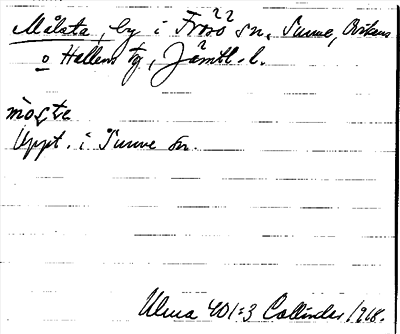 Målsta, by i Frösö?? sn, Sunne, Ovikens
o Hallens tg, Jämtl. l.
Uppt. i Sunne sn.
Ulma 401:3 Collinder 1918.